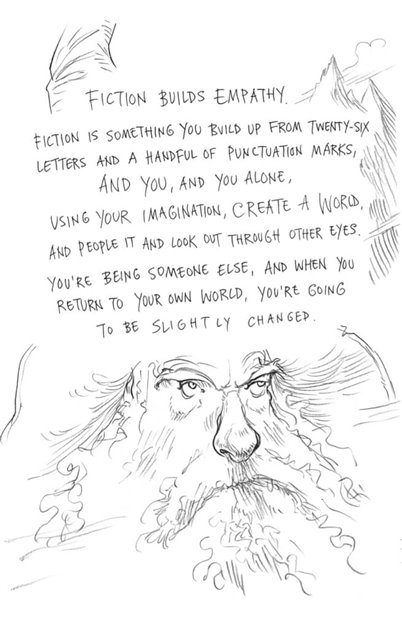 FICTION BUILDS EMPATHY.
FICTION IS SOMETHING YOU BUILD UP FROM TWENTY-SIX
LETTERS AND A HANDFUL OF PUNCTUATION MARKS,
AND YOU, AND YOU ALONE,
USING YOUR IMAGINATION, CREATE A WORLD,
AND PEOPLE IT AND LOOK OUT THROUGH OTHER EYES.
YOU'RE BEING SOMEONE ELSE, AND WHEN YOU
RETURN TO YOUR OWN WORLD, YOU'RE GOING
TO BE SLIGHTLY CHANGED.